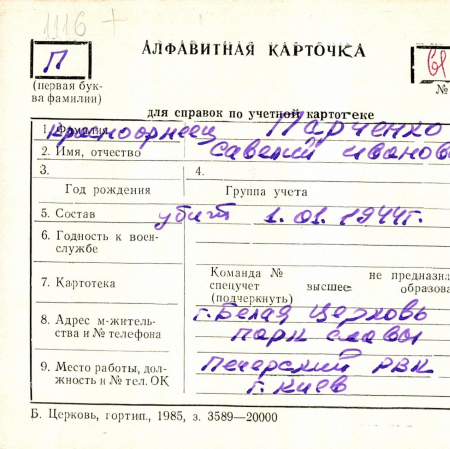 1116 +
АЛФАВИТНАЯ КАРТОЧКА
П
61
(первая бук-
ва фамилии)
№
для справок по учетной картотеке
1. Фамилия красноармеец Марченко
2. Имя, отчество Савелий Иванов
3.
4.
Год рождения
Группа учета
5. Состав убит 1.01.1944г.
6. Годность к воен-
службе
7. Картотека
Команда № не предназна
спецучет высшее образова
(подчеркнуть)
8. Адрес м-житель-
ства и № телефона
г. Белая Церковь
парк славы
9. Место работы, дол-
жность и № тел. ОК
Печерский РВК
г. Киев
Б. Церковь, гортип., 1985, з. 3589—20000